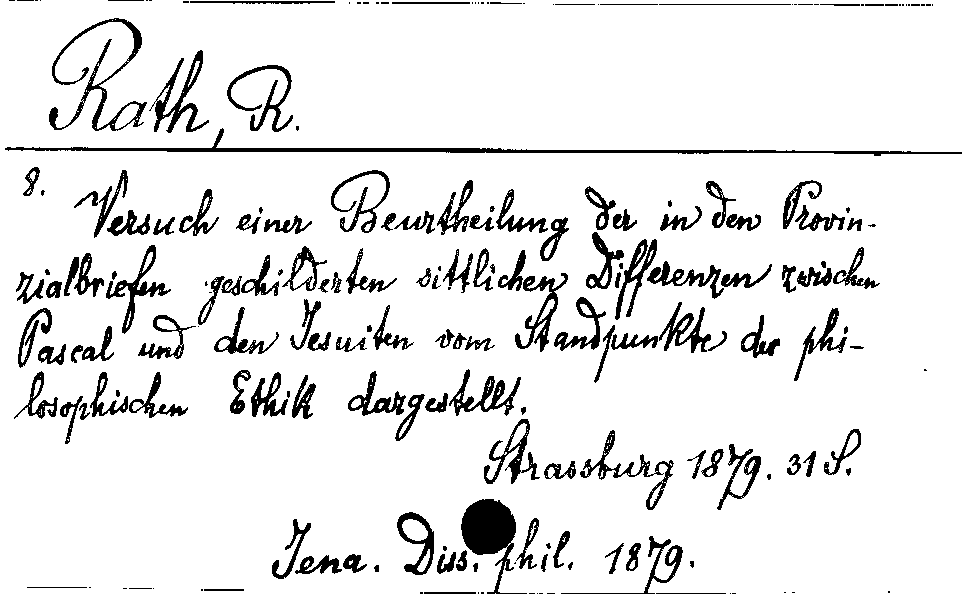 Rath, R.
8.
Versuch einer Beurtheilung der in den Provin-
zialbriefen geschilderten sittlichen Differenzen zwischen
Pascal und den Jesuiten vom Standpunkte der phi-
losophischen Ethik dargestellt.
Strassburg 1879. 31 S.
Jena. Diss. phil. 1879.